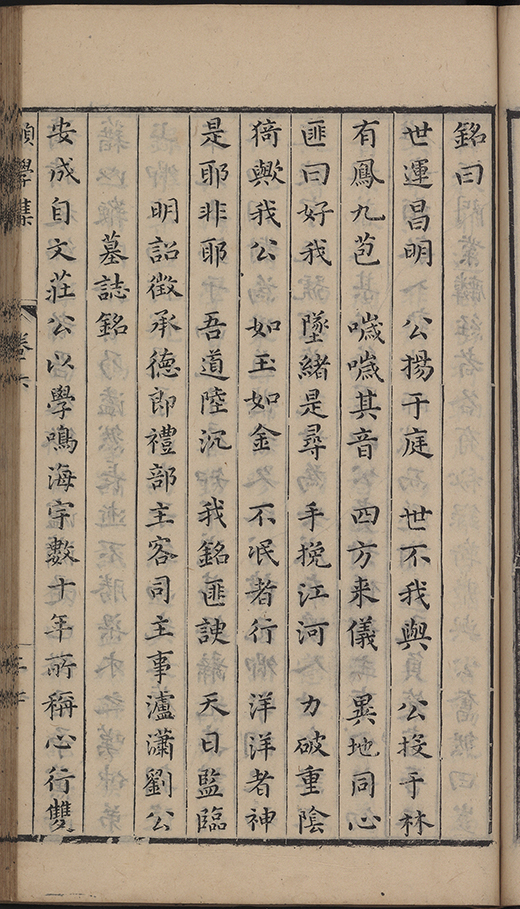 銘曰
世運昌明 公揚于庭 世不我與 公投于林
有鳳九苞 噦噦其音 四方來儀 異地同心
匪曰好我 墜緒是尋 手挽江河 力破重陰
猗歟我公 如玉如金 不泯者行 洋洋者神
是耶非耶 吾道陸沉 我銘匪諛 天日監臨
明詔徵承德郎禮部主客司主事瀘瀟劉公
墓誌銘
安成自文莊公以學鳴海宇數十年所稱心行雙
願學集 卷六